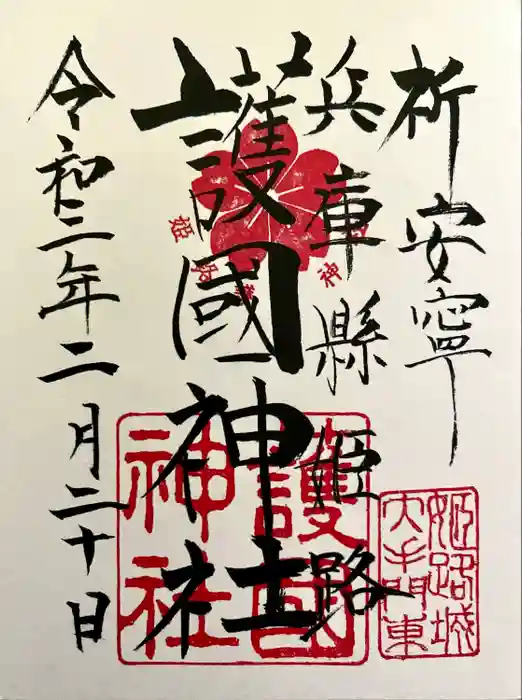 祈安寧
兵庫縣姫路
護國神社
令和三年二月二十日
護國
神社
姫路城
大手門東